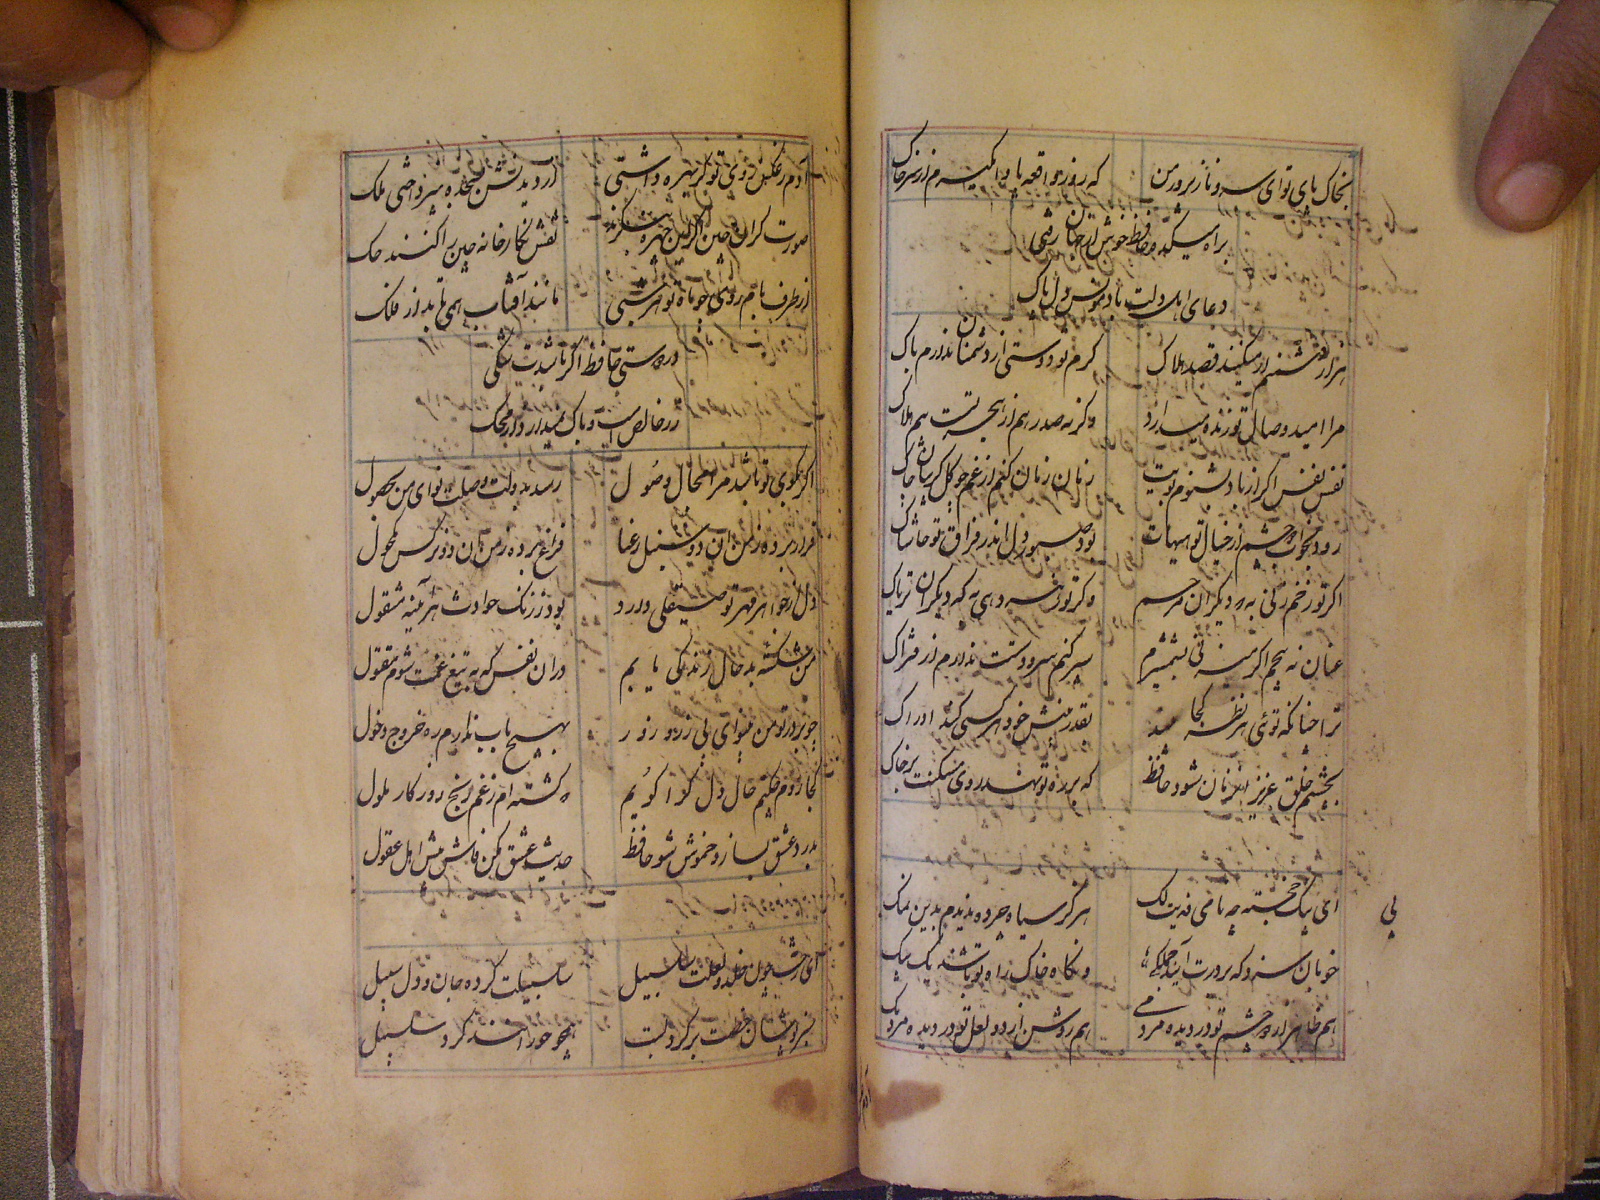 بخاک پای تو ای سرو ناز پرور من که روز واقعه پا وا مگیرم از سر خاک
براه میکده حافظ خوش از جهان رفتی
دعای اهل دلت باد مونس دل پاک
هزار دشمنم ار میکنند قصد هلاک کرم تو دوستی از دشمنان ندارم باک
مرا امید وصال تو زنده میدارد وکرنه صد رهم از هجر تست بیم هلاک
نفس نفس اکر از باد نشنوم بویت زمان زمان کنم از غم چو کل کریبان چاک
رود بخواب دو چشم از خیال تو هیهات بود صبور دل اندر فراق تو حاشاک
اکر تو زخم زنی به که دیکران مرهم وکر تو زهر دهی به که دیکران تریاک
عنان نه پیچم اکر میزنی بشمشیرم سپر کنم سر و دستت ندارم از فتراک
ترا چنانکه توئی هر نظر کجا بیند بقدر بینش خود هر کسی کند ادراک
بچشم خلق عزیز آنزمان شود حافظ که بر در تو نهد روی مسکنت بر خاک
ای پیک خجسته چه نامی فدیت لک هرکز سیاه چرده ندیدم بدین نمک
خوبان سزد که بر درت آیند جملکی وانکاه خاک راه تو باشند یک بیک
هم ظاهر از دو چشم تو در دیده مردمی هم روشن از دو لعل تو در دیده مردمک
پی
آدم ز عکس روی تو کر بهره داشتی از دیدنش بسجده نپرداختی ملک
صورت کران چین اکر این چهره بنکرند نقش نکارخانه چین را کنند حک
از طرف بام روی چو ماه تو هر شبی مانند آفتاب همی تابد از فلک
در دوستی حافظ اکر باشدت شکی
زر خالص است و باک نمیدارد از محک
اکر بکوی تو باشد مرا مجال وصول رسد بدولت وصلت نوای من بحصول
قرار برده ز من آن دو سنبل رعنا فراغ برده ز من آن دو نرکس مکحول
دل از جواهر مهرت چو صیقلی دارد بود ز زنک حوادث هر آینه مصقول
من شکسته بد حال زندکی یابم در آن نفس که به تیغ غمت شوم مقتول
چو بر در تو من بینوای بی زر و زور بهیچ باب ندارم ره خروج و دخول
کجا روم چکنم حال دل کرا کویم که کشته ام ز غم و رنج روزکار ملول
بدرد عشق بساز و خموش شو حافظ حدیث عشق مکن فاش پیش اهل عقول
ای رخت چون خلد و لعلت سلسبیل سلسبیلت کرده جان و دل سبیل
سبز پوشان خطت بر کرد لب همچو حورانند کرد سلسبیل